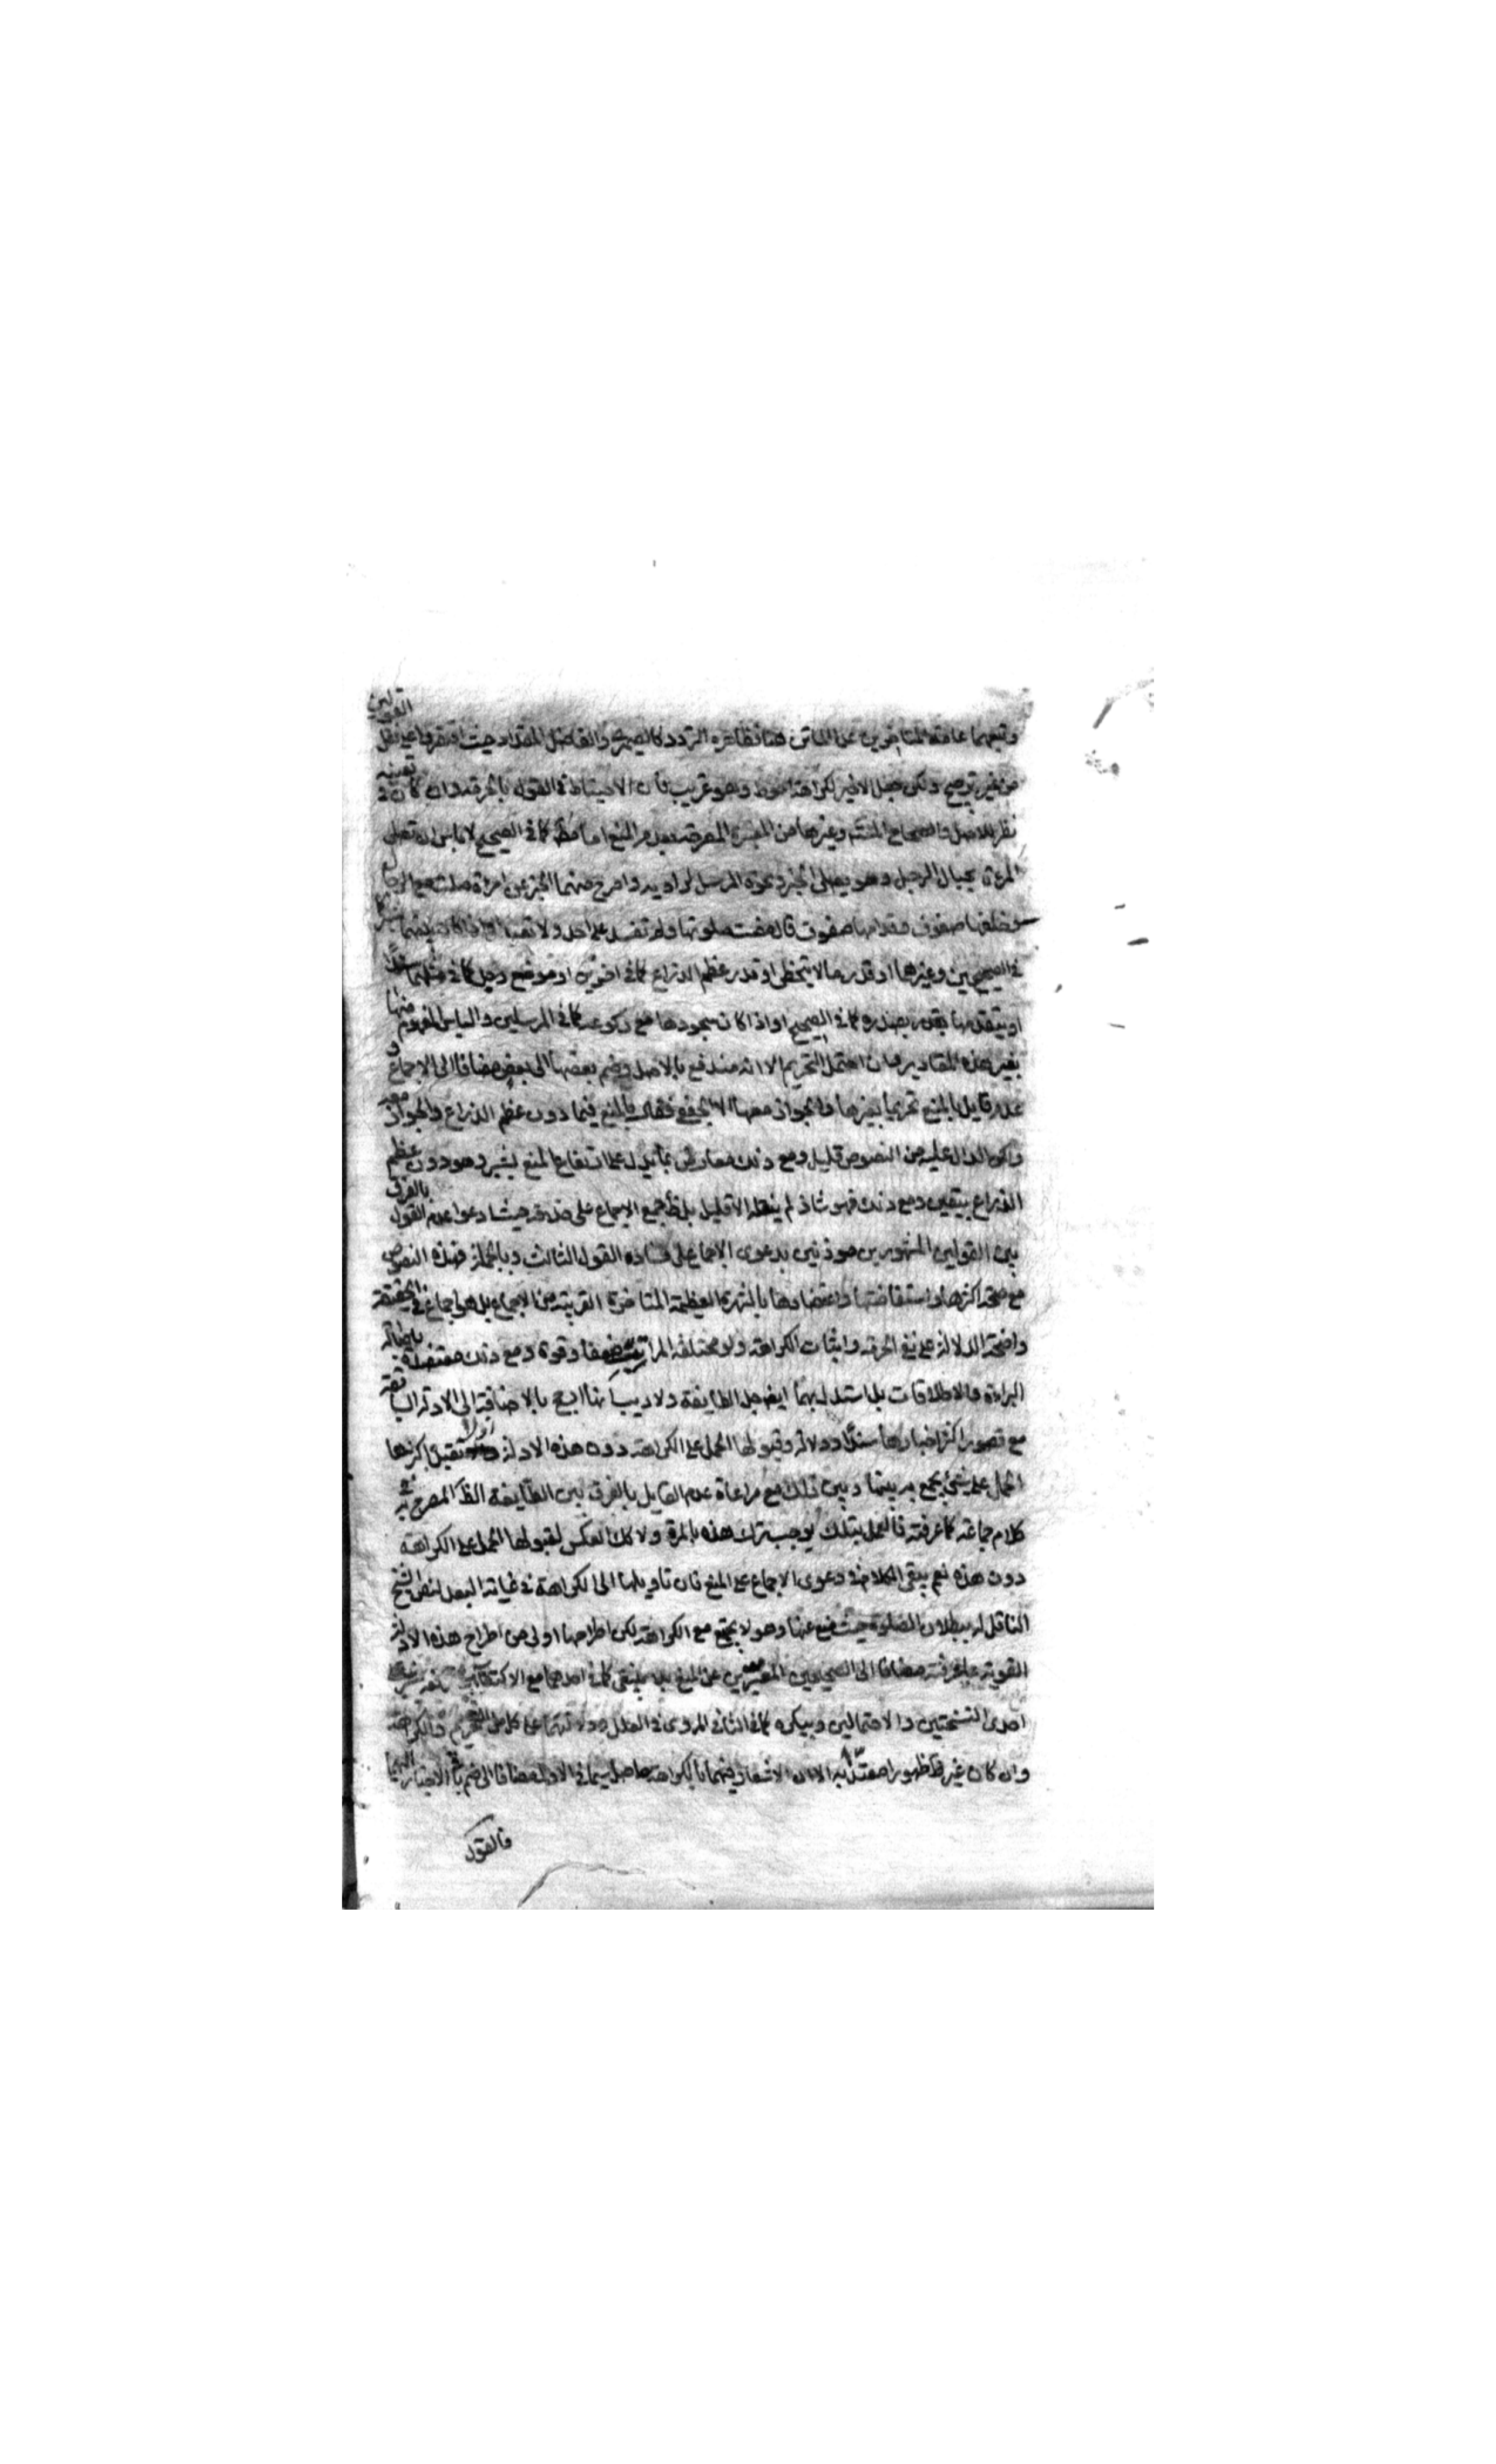 وتبعهما عامة المتأخرين عدا الماتن هنا فظاهره التردد كالصيمري والفاضل المقداد حيث اقتصرا على نقل القولين
من غير ترجيح ولكن جعل الاخير الكراهة احوط وهو غريب فان الاحتياط في القول بالحرمة وان كان في تعينه
نظر للاصل والصحاح وغيرها من المعتبرة المصرحة بعدم المنع اما مط كما في الصحيح لا باس ان تصلي
المرءة بحيال الرجل وهو يصلي ونحوه المرسل
وخلفها صفوف وقدامها صفوف قال مضت صلوتها ولم تفسد على احد ولا تعيد او اذا كان بينهما شبر كما
في الصحيحين وغيرهما او قدر ما لا يتخطى او قدر عظم الذراع كما في اخرين او موضع رجل كما في
او يتقدمها بقدر صدره كما في الصحيح او اذا كان سجودها مع ركوعه كما في المرسلين والباس المفهوم منها
بغير هذه المقادير وان احتمل التحريم الا انه مندفع بالاصل وضم بعضها الى بعض مضافا الى الاجماع و
عدم قايل بالمنع تحريما بغيرها والجواز معها الا الجعفي فقال بالمنع فيما دون عظم الذراع والجواز معه
ولكن الدال عليه من النصوص قليل ومع ذلك معارض بما يدل على ارتفاع المنع بشبر وهو دون عظم
الذراع بيقين ومع ذلك فهو شاذ لم ينقله الا قليل بل ظ جميع الاجماع على خلافه حيث ادعوا عدم القول بالفرق
بين القولين المشهورين موذنين بدعوى الاجماع على فساده القول الثالث وبالجملة فهذه النصوص
مع صحة اكثرها واستفاضتها واعتضادها بالشهرة العظيمة المتاخرة القريبة من الاجماع بل هي اجماع في الحقيقة
واضحة الدلالة على نفي الحرمة واثبات الكراهة ولو مختلفة المراتب ضعفا وقوة ومع ذلك معتضدة باصالة
البراءة والاطلاقات بل استدل بهما ايض جل الطايفة ولا ريب انها ارجح بالاضافة الى الادلة السابقة
مع قصور اكثر اخبارها سندا ودلالة وقبولها الحمل على الكراهة دون هذه الادلة اذ لا تقبل اكثرها
الحمل على شيء يجمع به بينها وبين تلك مع مراعاة عدم القايل بالفرق بين الطايفة الظ المصرح به في
كلام جماعة كما عرفته فالعمل بتلك يوجب ترك هذه بالمرة ولا كك العكس لقبولها الحمل على الكراهة
دون هذه نعم يبقى الكلام في دعوى الاجماع على المنع فان تاويلها الى الكراهة في غاية البعد لنص الشيخ
الناقل له ببطلان الصلوة حيث منع عنها وهو لا يجتمع مع الكراهة لكن اطراحها اولى من اطراح هذه الادلة
القوية على ما عرفته مضافا الى الصحيحين المعبرين عن المنع بلا ينبغي كما في احدهما مع الاكتفاء
احدى النسختين والاحتمالين وبيكره كما في الثاني المروي في العلل ودلالتهما على كل من التحريم والكراهة
وان كان غير ظ ظهورا معتدا به الا ان الاشعار فيهما بالكراهة حاصل سيما في الاول مضافا الى ضم باقي الاخبار اليهما
فالقول